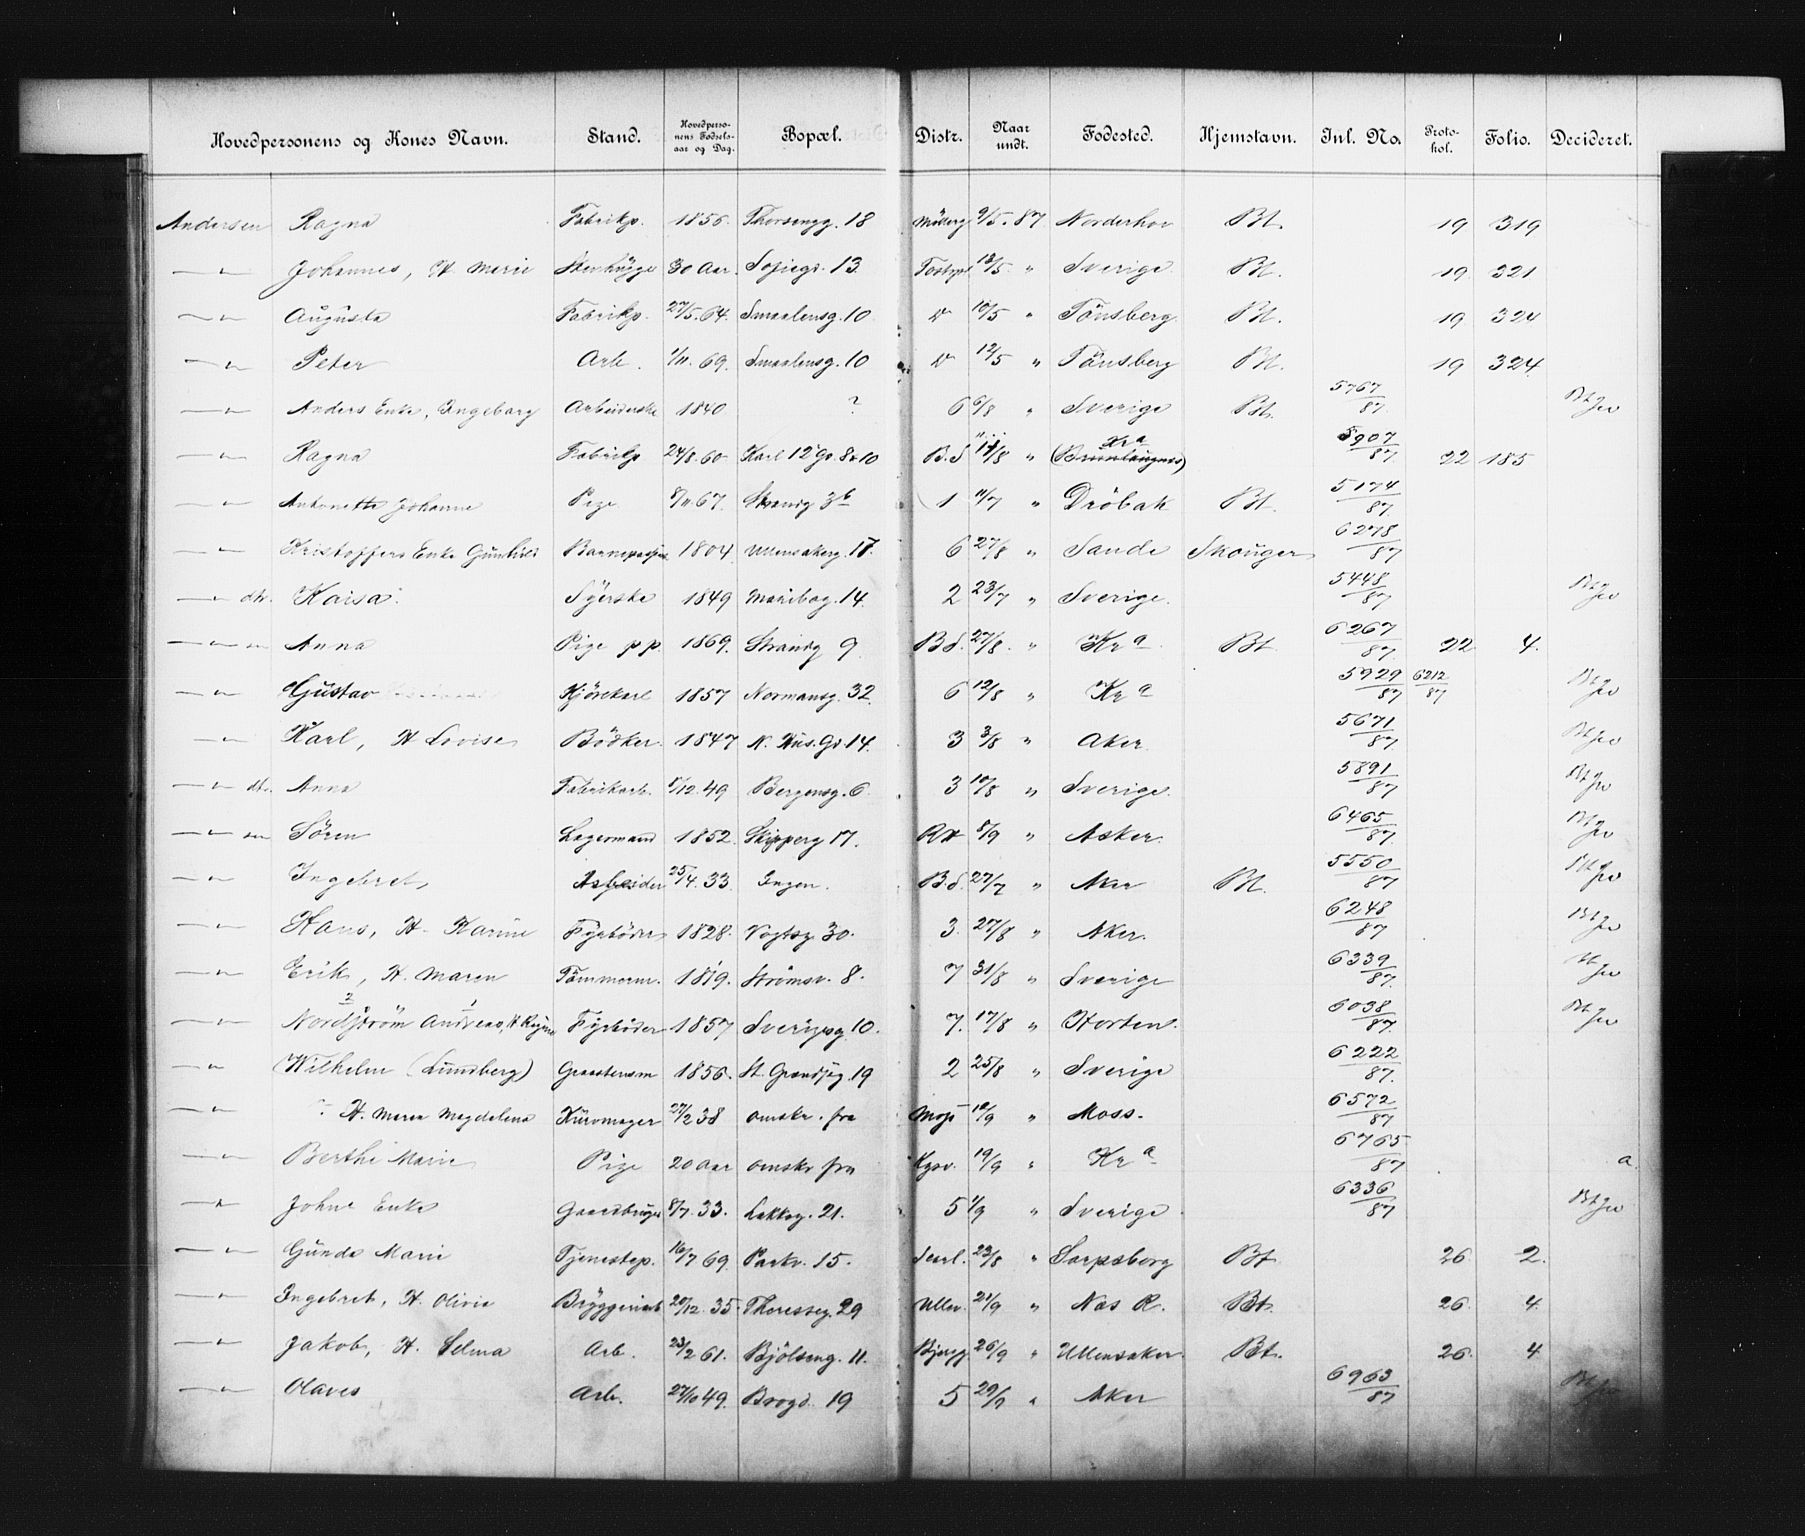 Hovedpersonens og Kones Navn. Stand. Hovedperso-nens Fødsels-aar og Dag. Bopæl. Distr. Naar undt. Fødested. Hjemstavn. Inl. No. Proto-kol. Folio. Decideret.
Andersen Ragna Fabrikp. 1856. Thorsengg. 18 9/5. 87 Norderhov Bt. 19 319
—"— Johannes, H Marie Stenhugge 30 Aar. Sofiegd. 13 13/5. " Sverige Bt. 19 321
—"— Augusta Fabrikp. 27/5. 64. Smaalensg. 10 10/5 " Tönsberg Bt. 19 324
—"— Peter Arb. 1/11. 69. Smaalensg. 10 12/5 " Tönsberg Bt. 19 324.
—"— Anders Enke, Ingeborg Arbeiderske 1840 ? 6 6/8 " Sverige Bt. 5767/87.
—"— Ragna Fabrikp 24/8. 60 Karl 12 Gd. 8 & 10 B.d 11/8 " Kra (Brunlaugnes) 5907/87 22 185
—"— Antonette Johanne Pige 8/11 67. Strandg 3b 1 11/7 " Dröbak Bt. 5174/87.
—"— Kristoffers Enke Gunhild 1804. Ullensakerg. 17. 6 27/8 " Sande Skouger 6278/87
—"— dtr. Kaisa. Syerske 1849 Maribog. 14. 2 23/7 " Sverige. 5448/87
—"— Anna Pige pp 1869. Strandg 9. B.d. 27/8. " Kra Bt 6267/87. 22 4.
—"— Gustav Kjörekarl 1857 Normansg. 32. 6 12/8 " Kra 5929/87 6212/87
—"— Karl, H Lovise Bödker. 1847 N. Hus. Gd. 14. 3 3/8 " Aker 5671/87
—"— dtr. Anna Fabrikarb. /12. 49 Bergensg. 6. 3 10/8 " Sverige. 5891/87
—"— sen Sören Lagermand 1852. Skipperg 17. 8/9 " Asker. 6465/87.
—"— Ingebret, Arbeider 25/4. 33. Ingen. B.d. 27/7 " Aker Bt. 5550/87
—"— Hans, H. Karine Fyrböder 1828. Vogtsg. 30. 3. 27/8 " Aker. 6248/87
—"— Erik, H. Maren Tömmerm. 1819. Strömsv. 8. 7 31/8 " Sverige 6339/87.
—"— Nordström Andreas, H Regine Fyrböder 1857 Sverigsg. 10. 7. 17/8 " Horten. 6038/87.
—"— Wilhelm (Lundberg) 1856. St. Grændseg. 19 2 25/8 " Sverige 6222/87.
—"— H. Maren Magdalena Kurvmager 27/2 38 omskr. fra 10/9 " Moss. 6572/87
—"— Berthe Marie Pige 20 Aar omskr fra 19/9 " Kra 6765/87 a.
—"— Johns Enke Gaardbruger 8/7. 33. Lakkeg. 21. 5 1/9 " Sverige 6336/87
—"— Gunda Marie Tjenestep. 16/7 69. Parkv. 15. 23/8 " Sarpsborg Bt 26 2.
—"— Ingebret, H. Olivie Bryggeriarb 20/12. 35. Theresseg. 29 Ullev. 21/9 " Næs R. Bt. 26 4.
—"— Jakob, H. Selma Arb. 23/2 61. Bjölseng. 11. 26/9 " Ullensaker. Bt. 26. 4
—"— Olaves Arb. 27/10 49. Brogd. 19 5 29/9 " Aker 6963/87